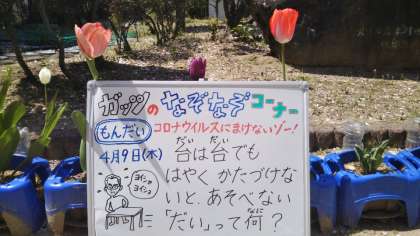 ガッツのなぞなぞコーナー
もんだい
コロナウイルスにまけないゾー!
4月9日(木)
台は台でも
だい だい
はやく かたづけな
いと、あそべない
「だい」って何?
なに
ヨイショ ヨイショ